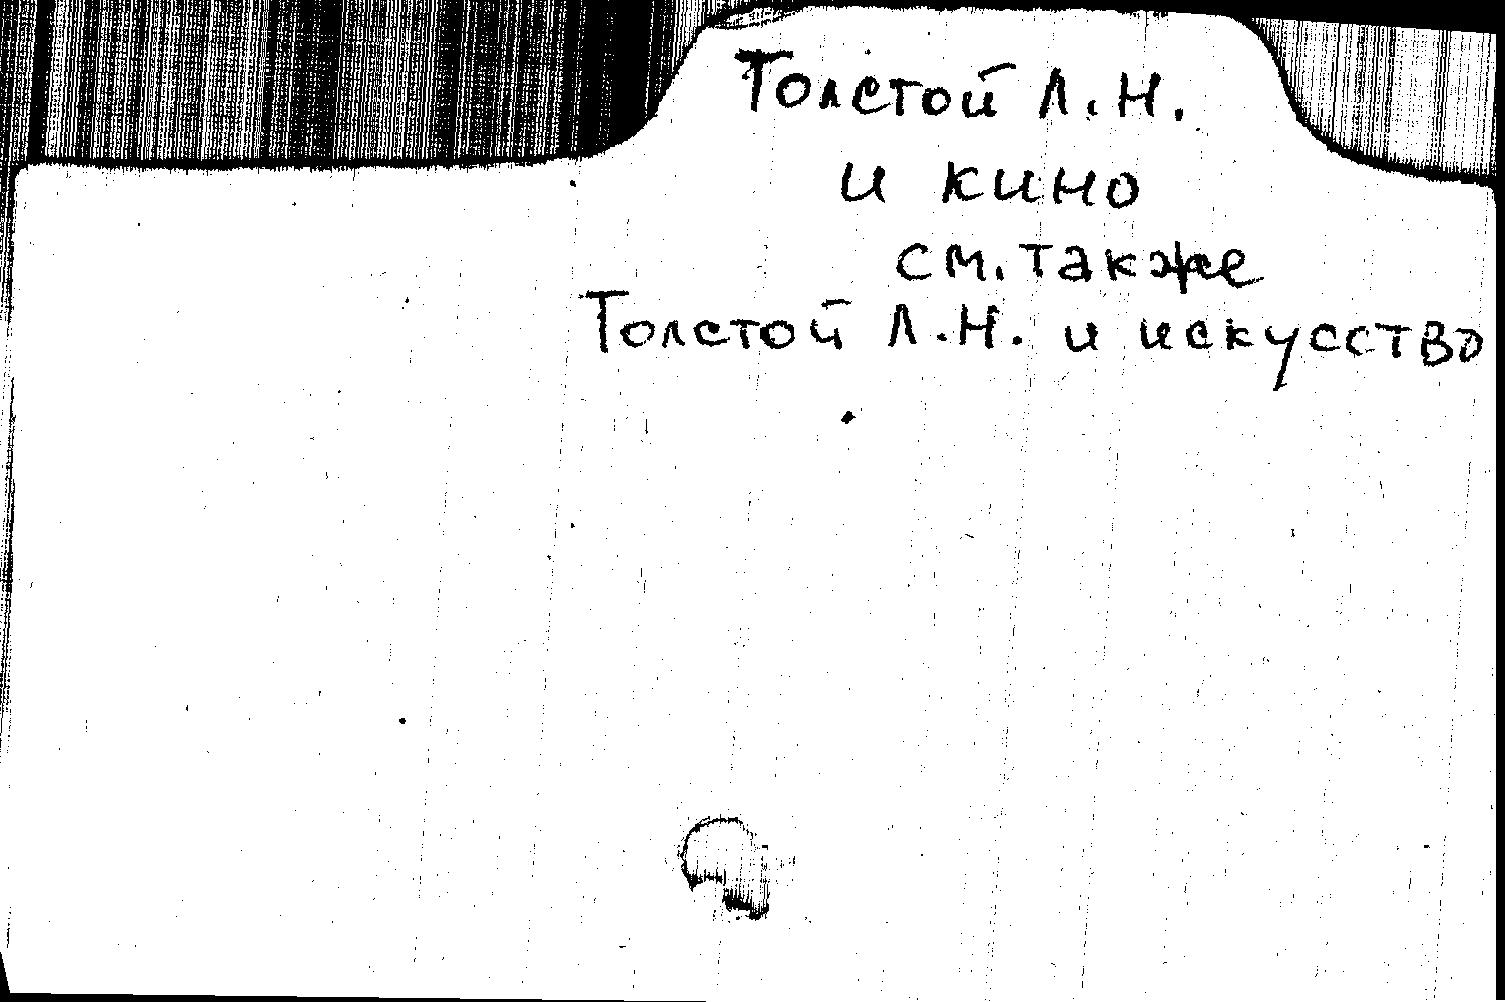 Толстой Л.Н.
и кино
см. также
Толстой Л.Н. и искусство